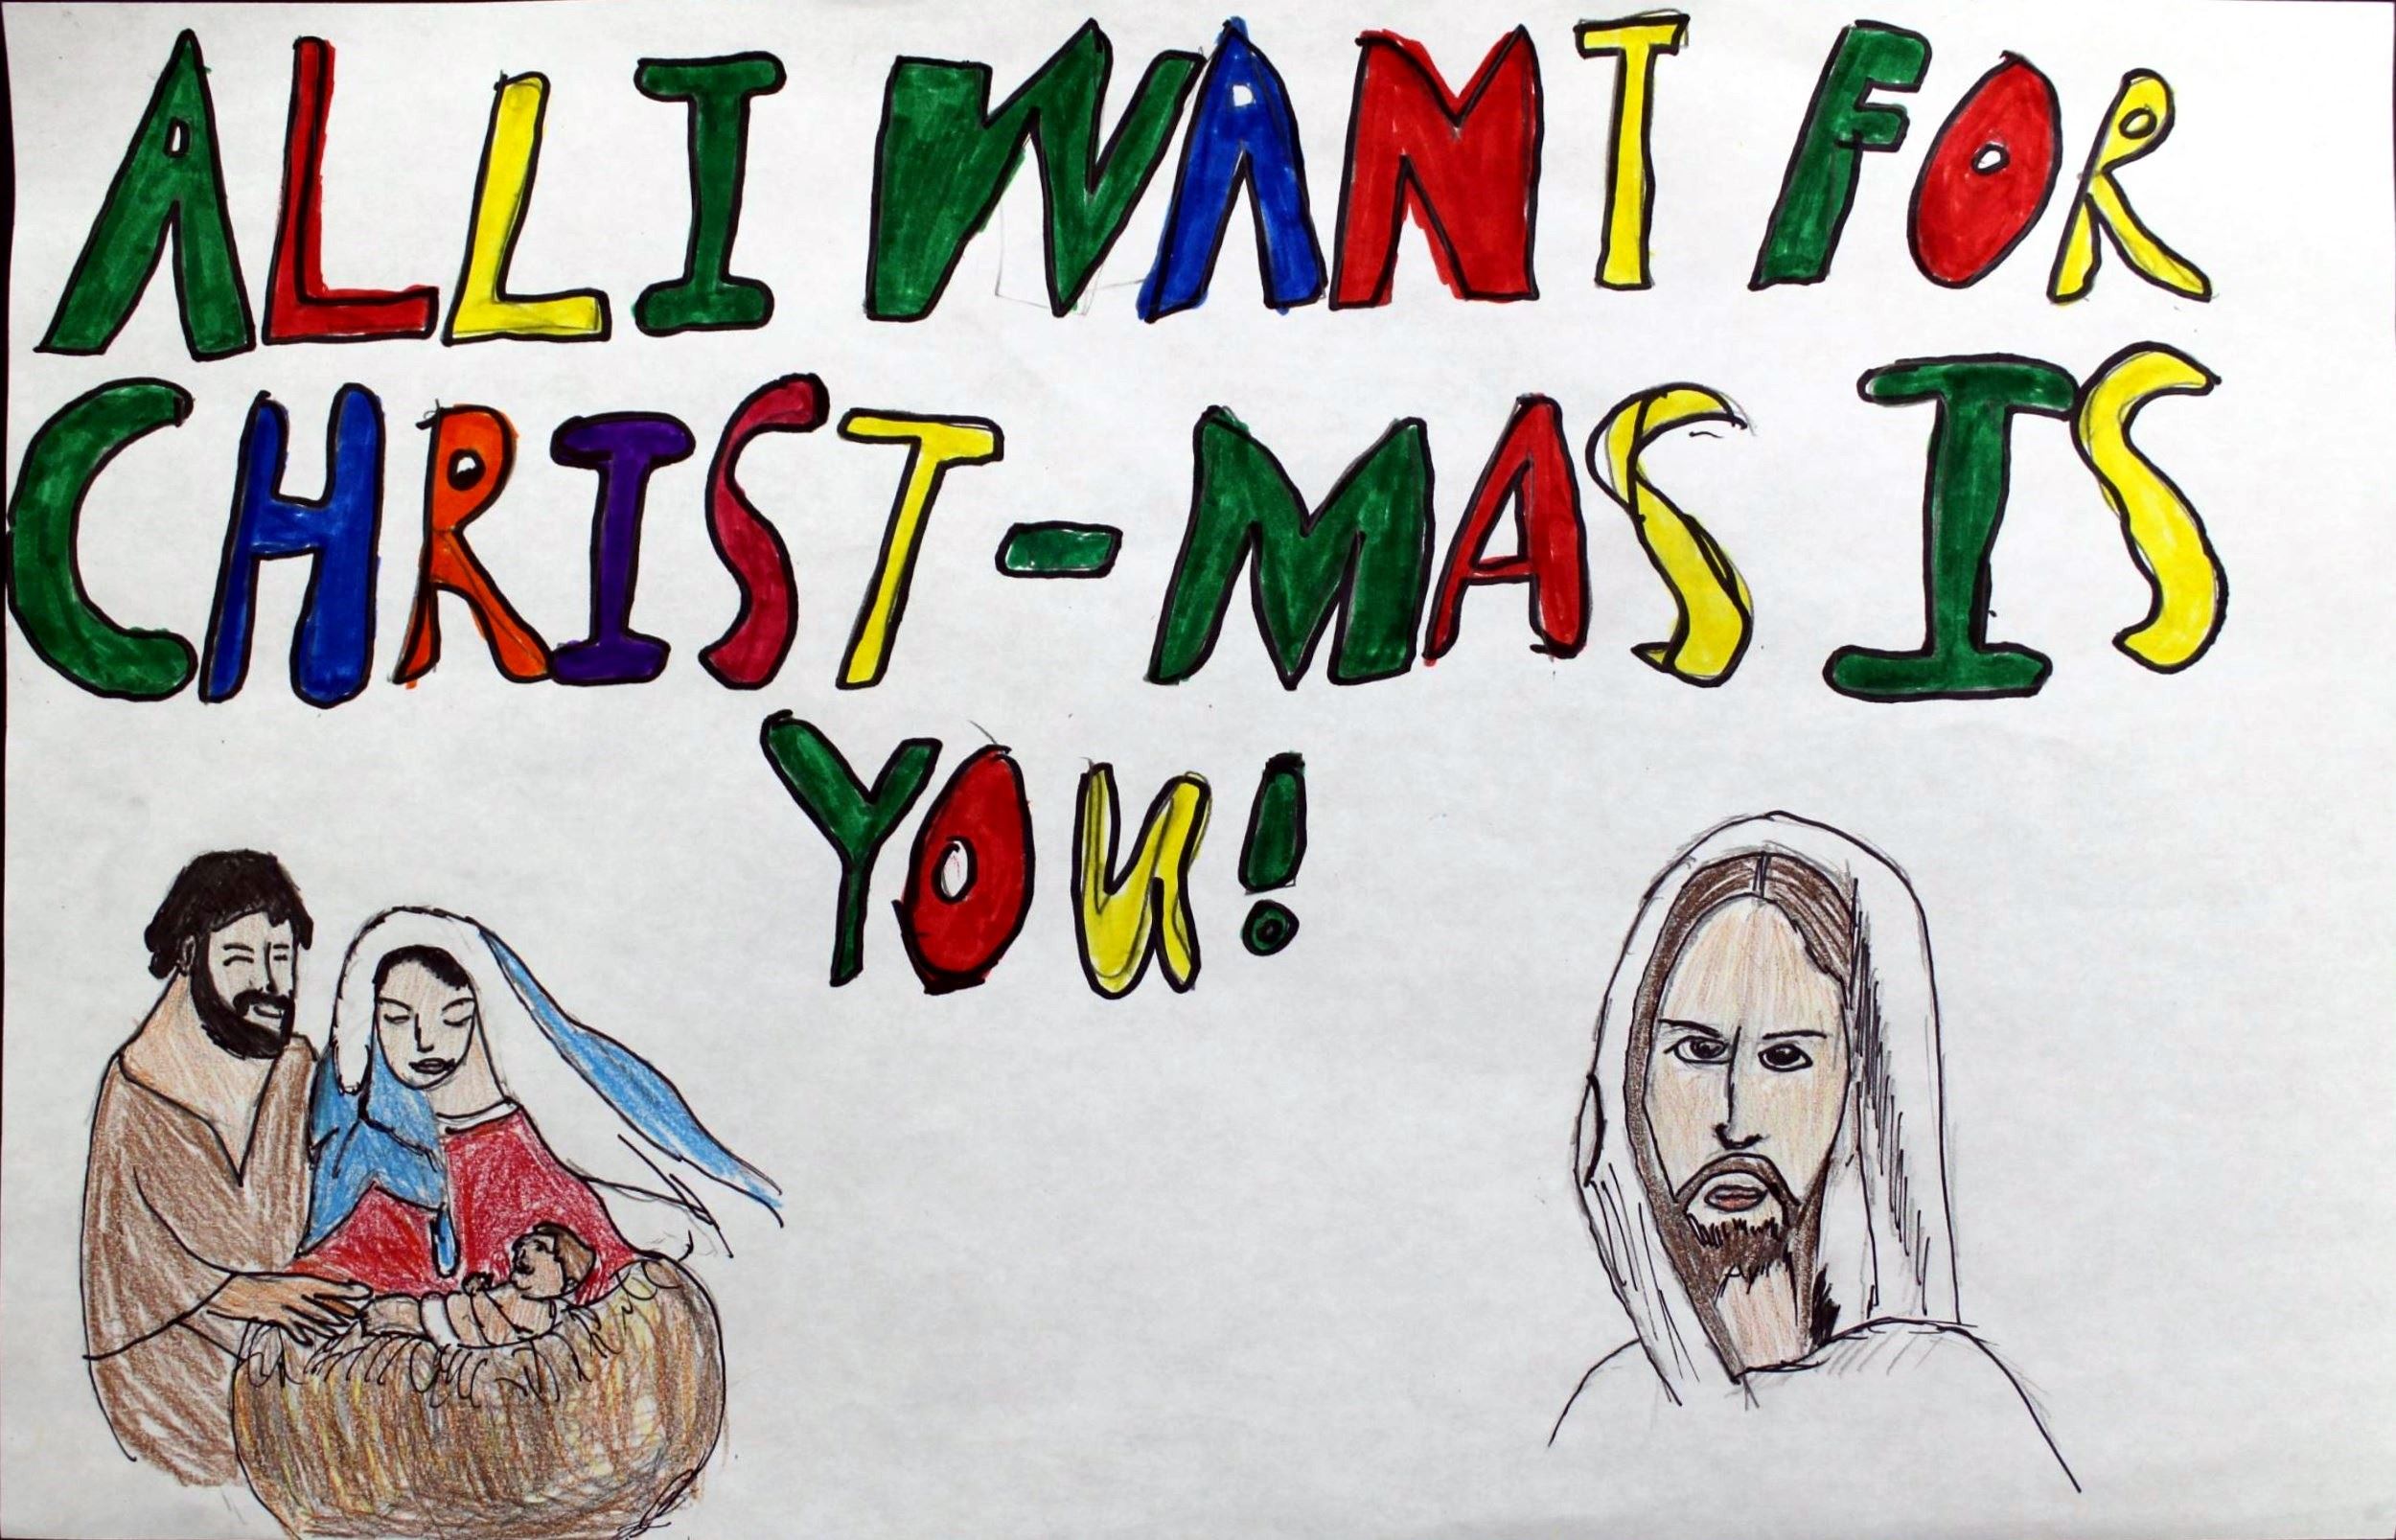 ALL I WANT FOR
CHRIST-MAS IS
YOU!